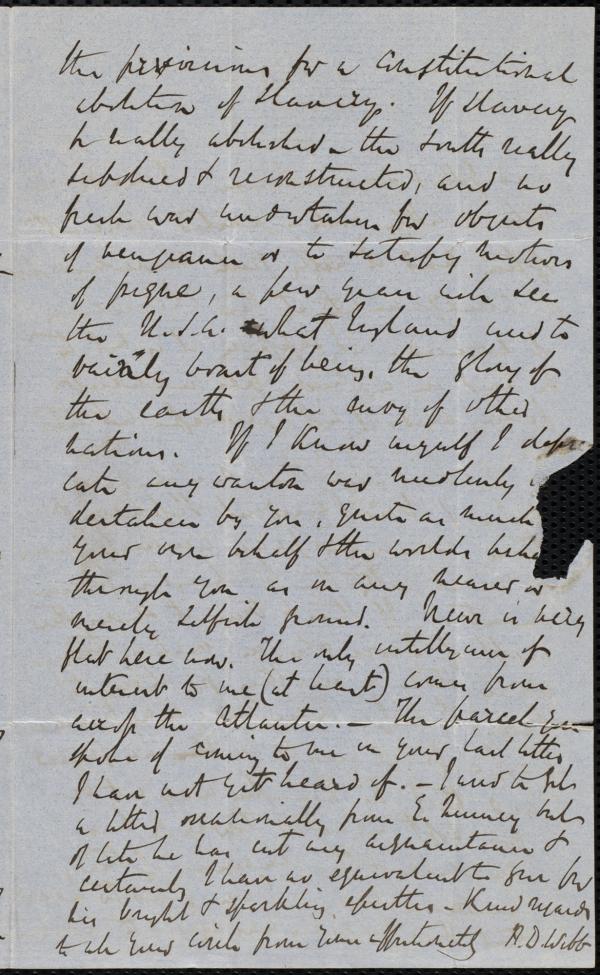 the provisions for a constitutional
abolition of slavery. If slavery
be really abolished - the South really
subdued & reconstructed, and no
fresh war undertaken for objects
of vengeance or to satisfy motives
of pique, a few years will see
the U.S.A. what England used to
vainly boast of being, the glory of
the earth & the envy of other
nations. If I know myself I depre
cate any wanton war needlessly
dertaken by you, quite as much
your own behalf & the worlds
through you as on any nearer or
merely selfish ground. News is very
flat here now. The only intelligence of
interest to me (at least) comes from
across the Atlantic. - The parcel you
spoke of coming to me in your last letter
I have not yet heard of. - I used to get
a letter occasionally from but
of late he has cut my acquaintance &
certainly I have no equivalent to give for
his bright & sparkling epistles - Kind regards
to all your circle from yours affectionately R. D. Webb